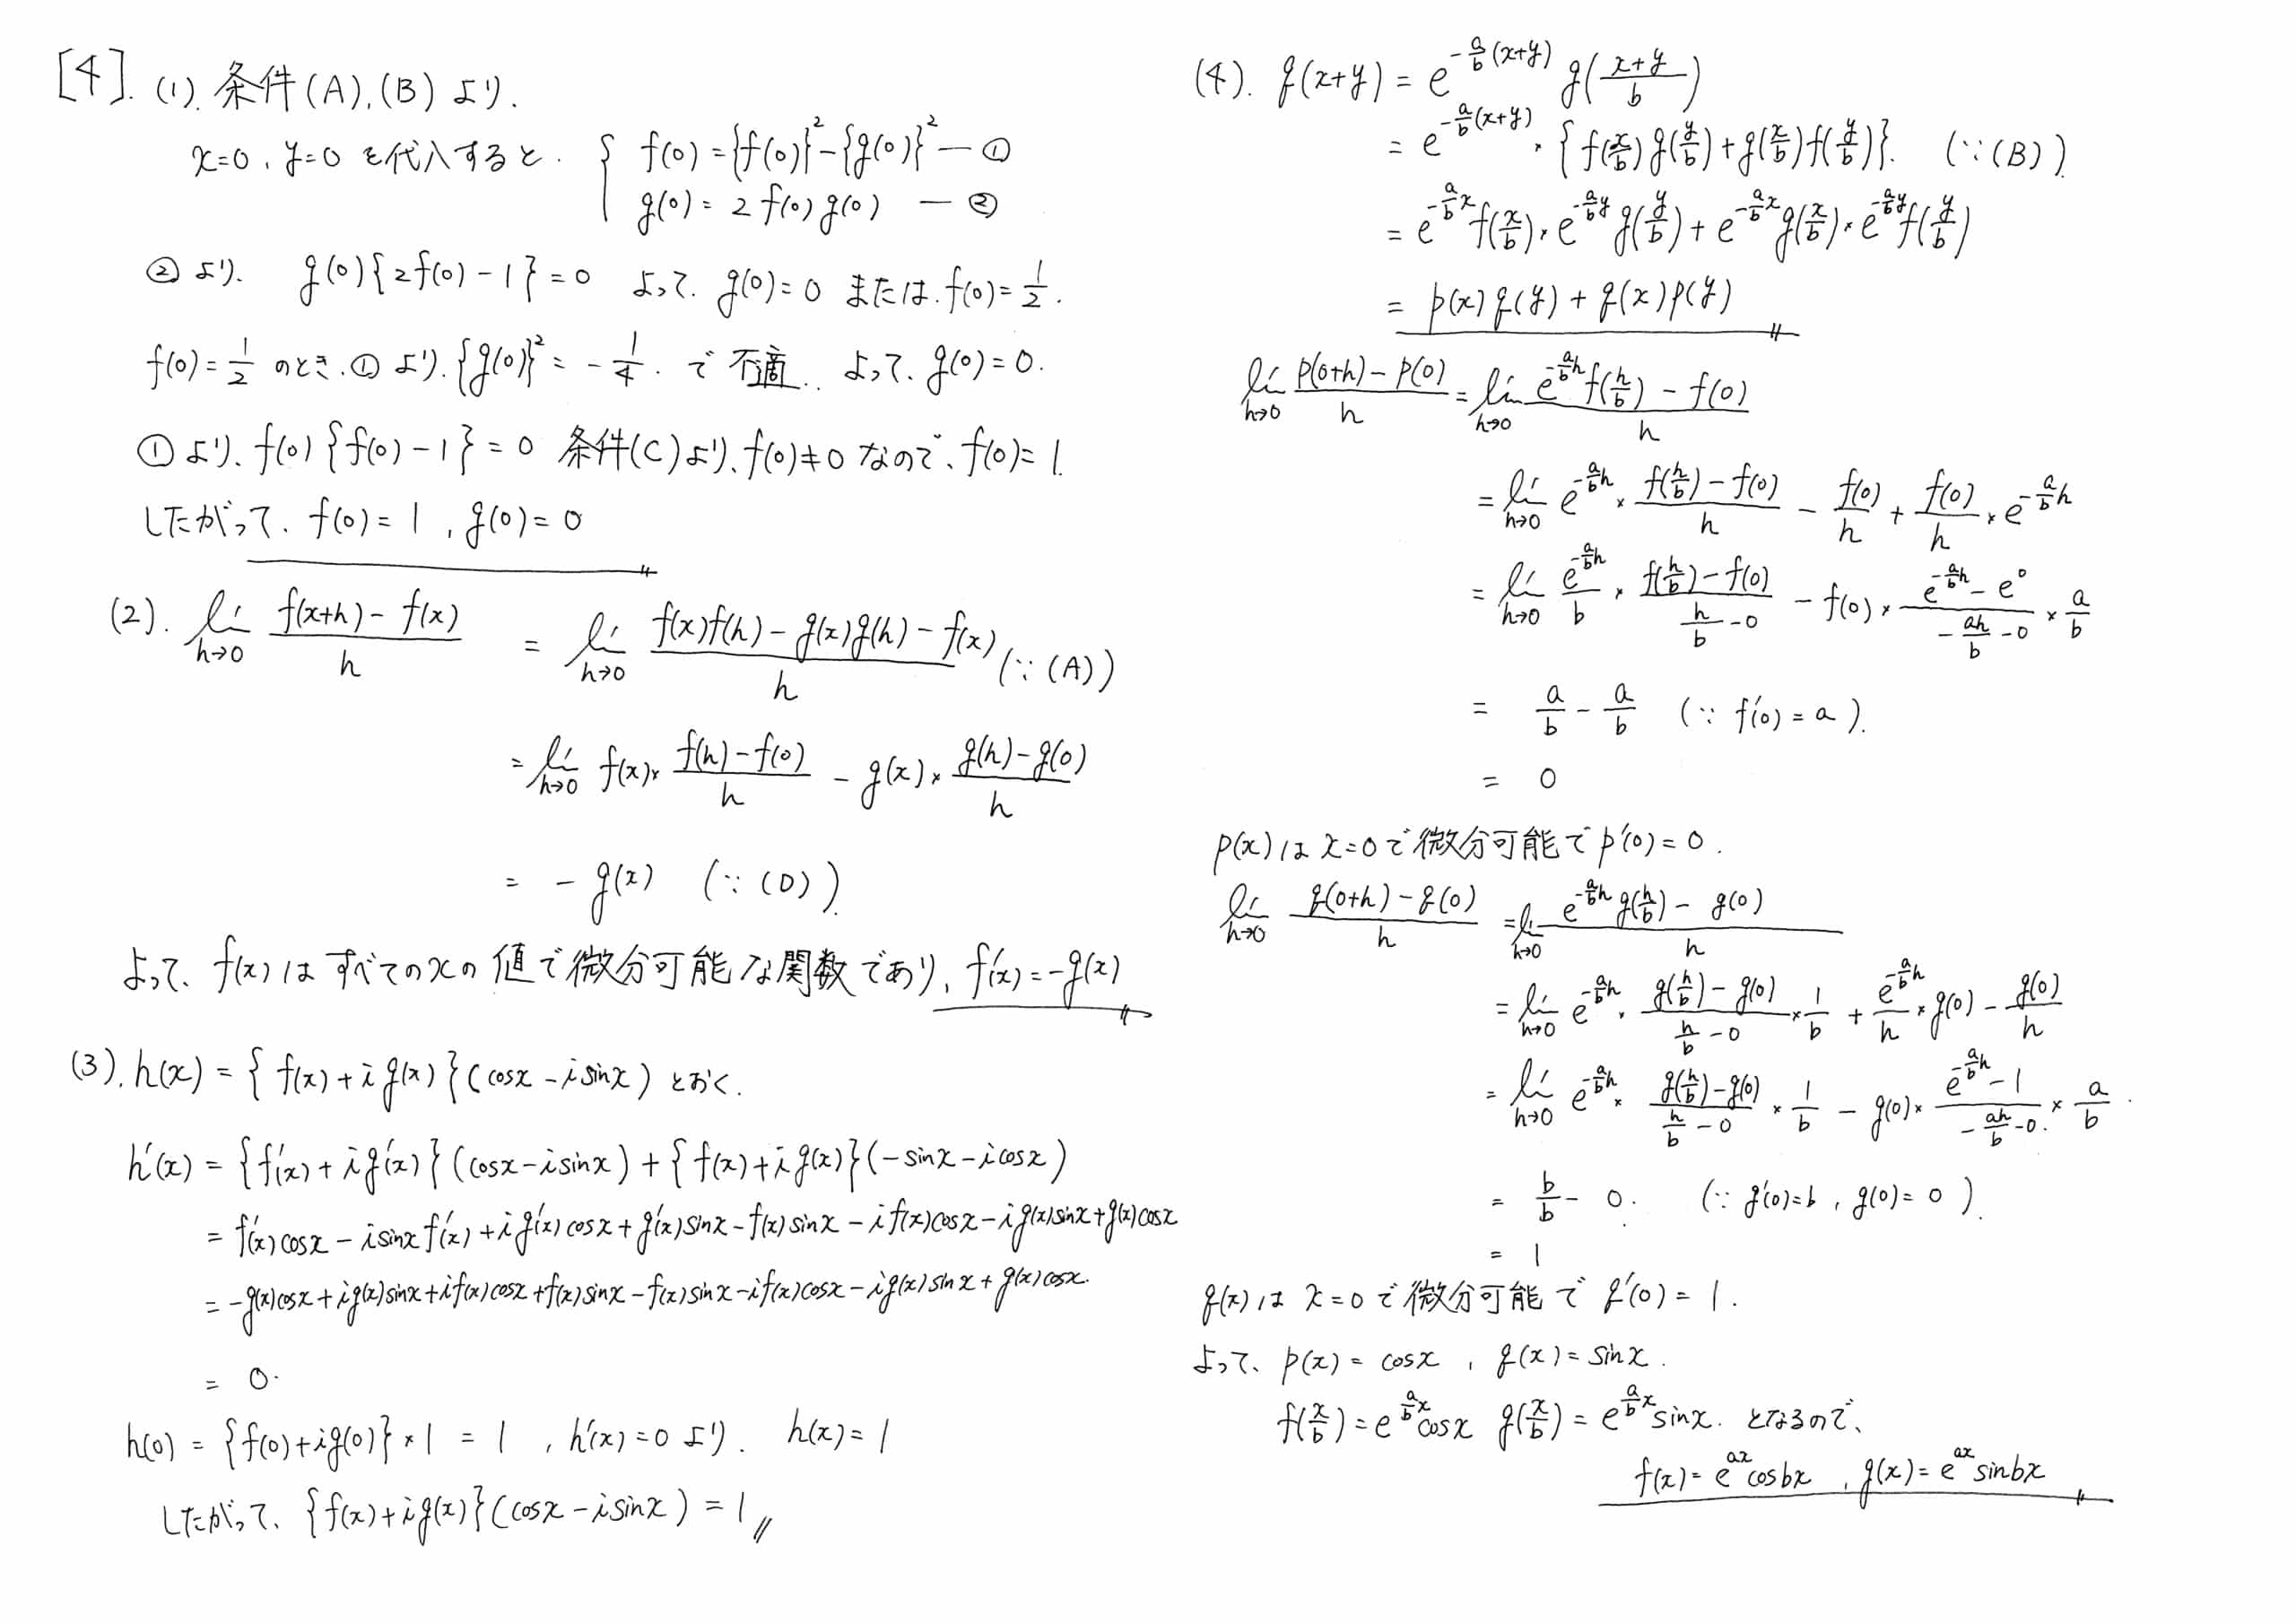 [4]. (1). 条件(A),(B) より.
x=0, y=0 を代入すると. { f(0) = {f(0)}² - {g(0)}² — ①
g(0) = 2 f(0) g(0) — ②
② より. g(0){2f(0) - 1} = 0 よって. g(0) = 0 または. f(0) = 1/2.
f(0) = 1/2 のとき. ① より. {g(0)}² = - 1/4. で 不適.. よって、g(0) = 0.
① より、f(0) {f(0) - 1} = 0 条件(C)より、f(0) ≠ 0 なので、f(0) = 1.
したがって、f(0) = 1, g(0) = 0
(2). lim_{h→0} (f(x+h) - f(x))/h = lim_{h→0} (f(x)f(h) - g(x)g(h) - f(x))/h (∵ (A))
= lim_{h→0} f(x) × (f(h) - f(0))/h - g(x) × (g(h) - g(0))/h
= - g(x) (∵ (D)).
よって、f(x) は すべてのxの 値で微分可能な関数であり、f'(x) = -g(x)
(3). h(x) = { f(x) + i g(x) }(cosx - i sinx) とおく.
h'(x) = {f'(x) + i g'(x)}(cosx - i sinx) + {f(x) + i g(x)}(-sinx - i cosx)
= f'(x) cosx - i sinx f'(x) + i g'(x) cosx + g'(x) sinx - f(x) sinx - i f(x) cosx - i g(x) sinx + g(x) cosx
= -g(x) cosx + i g(x) sinx + i f(x) cosx + f(x) sinx - f(x) sinx - i f(x) cosx - i g(x) sinx + g(x) cosx.
= 0.
h(0) = {f(0) + i g(0)} × 1 = 1 , h'(x) = 0 より. h(x) = 1
したがって、{f(x) + i g(x)}(cosx - i sinx) = 1
(4). q(x+y) = e^{-a/b (x+y)} g((x+y)/b)
= e^{-a/b (x+y)} × {f(x/b) g(y/b) + g(x/b) f(y/b)}. (∵ (B)).
= e^{-a/b x} f(x/b) × e^{-a/b y} g(y/b) + e^{-a/b x} g(x/b) × e^{-a/b y} f(y/b)
= p(x) q(y) + q(x) p(y)
lim_{h→0} (p(0+h) - p(0))/h = lim_{h→0} (e^{-a/b h} f(h/b) - f(0))/h
= lim_{h→0} e^{-a/b h} × (f(h/b) - f(0))/h - f(0)/h + f(0)/h × e^{-a/b h}
= lim_{h→0} e^{-a/b h}/b × (f(h/b) - f(0))/(h/b - 0) - f(0) × (e^{-a/b h} - e⁰)/(-ah/b - 0) × a/b
= a/b - a/b (∵ f'(0) = a).
= 0
p(x) は x=0 で 微分可能で p'(0) = 0.
lim_{h→0} (q(0+h) - q(0))/h = lim_{h→0} (e^{-a/b h} g(h/b) - g(0))/h
= lim_{h→0} e^{-a/b h} × (g(h/b) - g(0))/(h/b - 0) × 1/b + e^{-a/b h}/h × g(0) - g(0)/h
= lim_{h→0} e^{-a/b h} × (g(h/b) - g(0))/(h/b - 0) × 1/b - g(0) × (e^{-a/b h} - 1)/(-ah/b - 0.) × a/b.
= b/b - 0. (∵ g'(0) = b, g(0) = 0).
= 1
q(x) は x=0 で 微分可能 で q'(0) = 1.
よって、p(x) = cosx , q(x) = sinx.
f(x/b) = e^{a/b x} cosx g(x/b) = e^{a/b x} sinx. となるので、
f(x) = e^{ax} cosbx , g(x) = e^{ax} sinbx